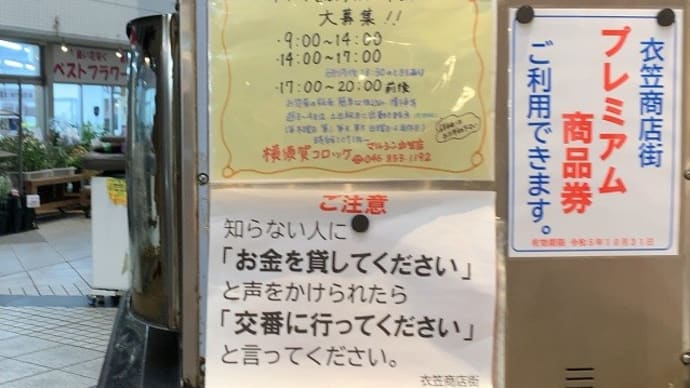 良い花安く
ベストフラワー
大募集!!
・9:00〜14:00
・14:00〜17:00
・17:00〜20:00前後
横須賀コロッケ
マルシン衣笠店
046 853-1192
ご注意
知らない人に
「お金を貸してください」
と声をかけられたら
「交番に行ってください」
と言ってください。
衣笠商店街
衣笠商店街
プレミアム
商品券
ご利用できます。
有効期限 令和5年10月31日